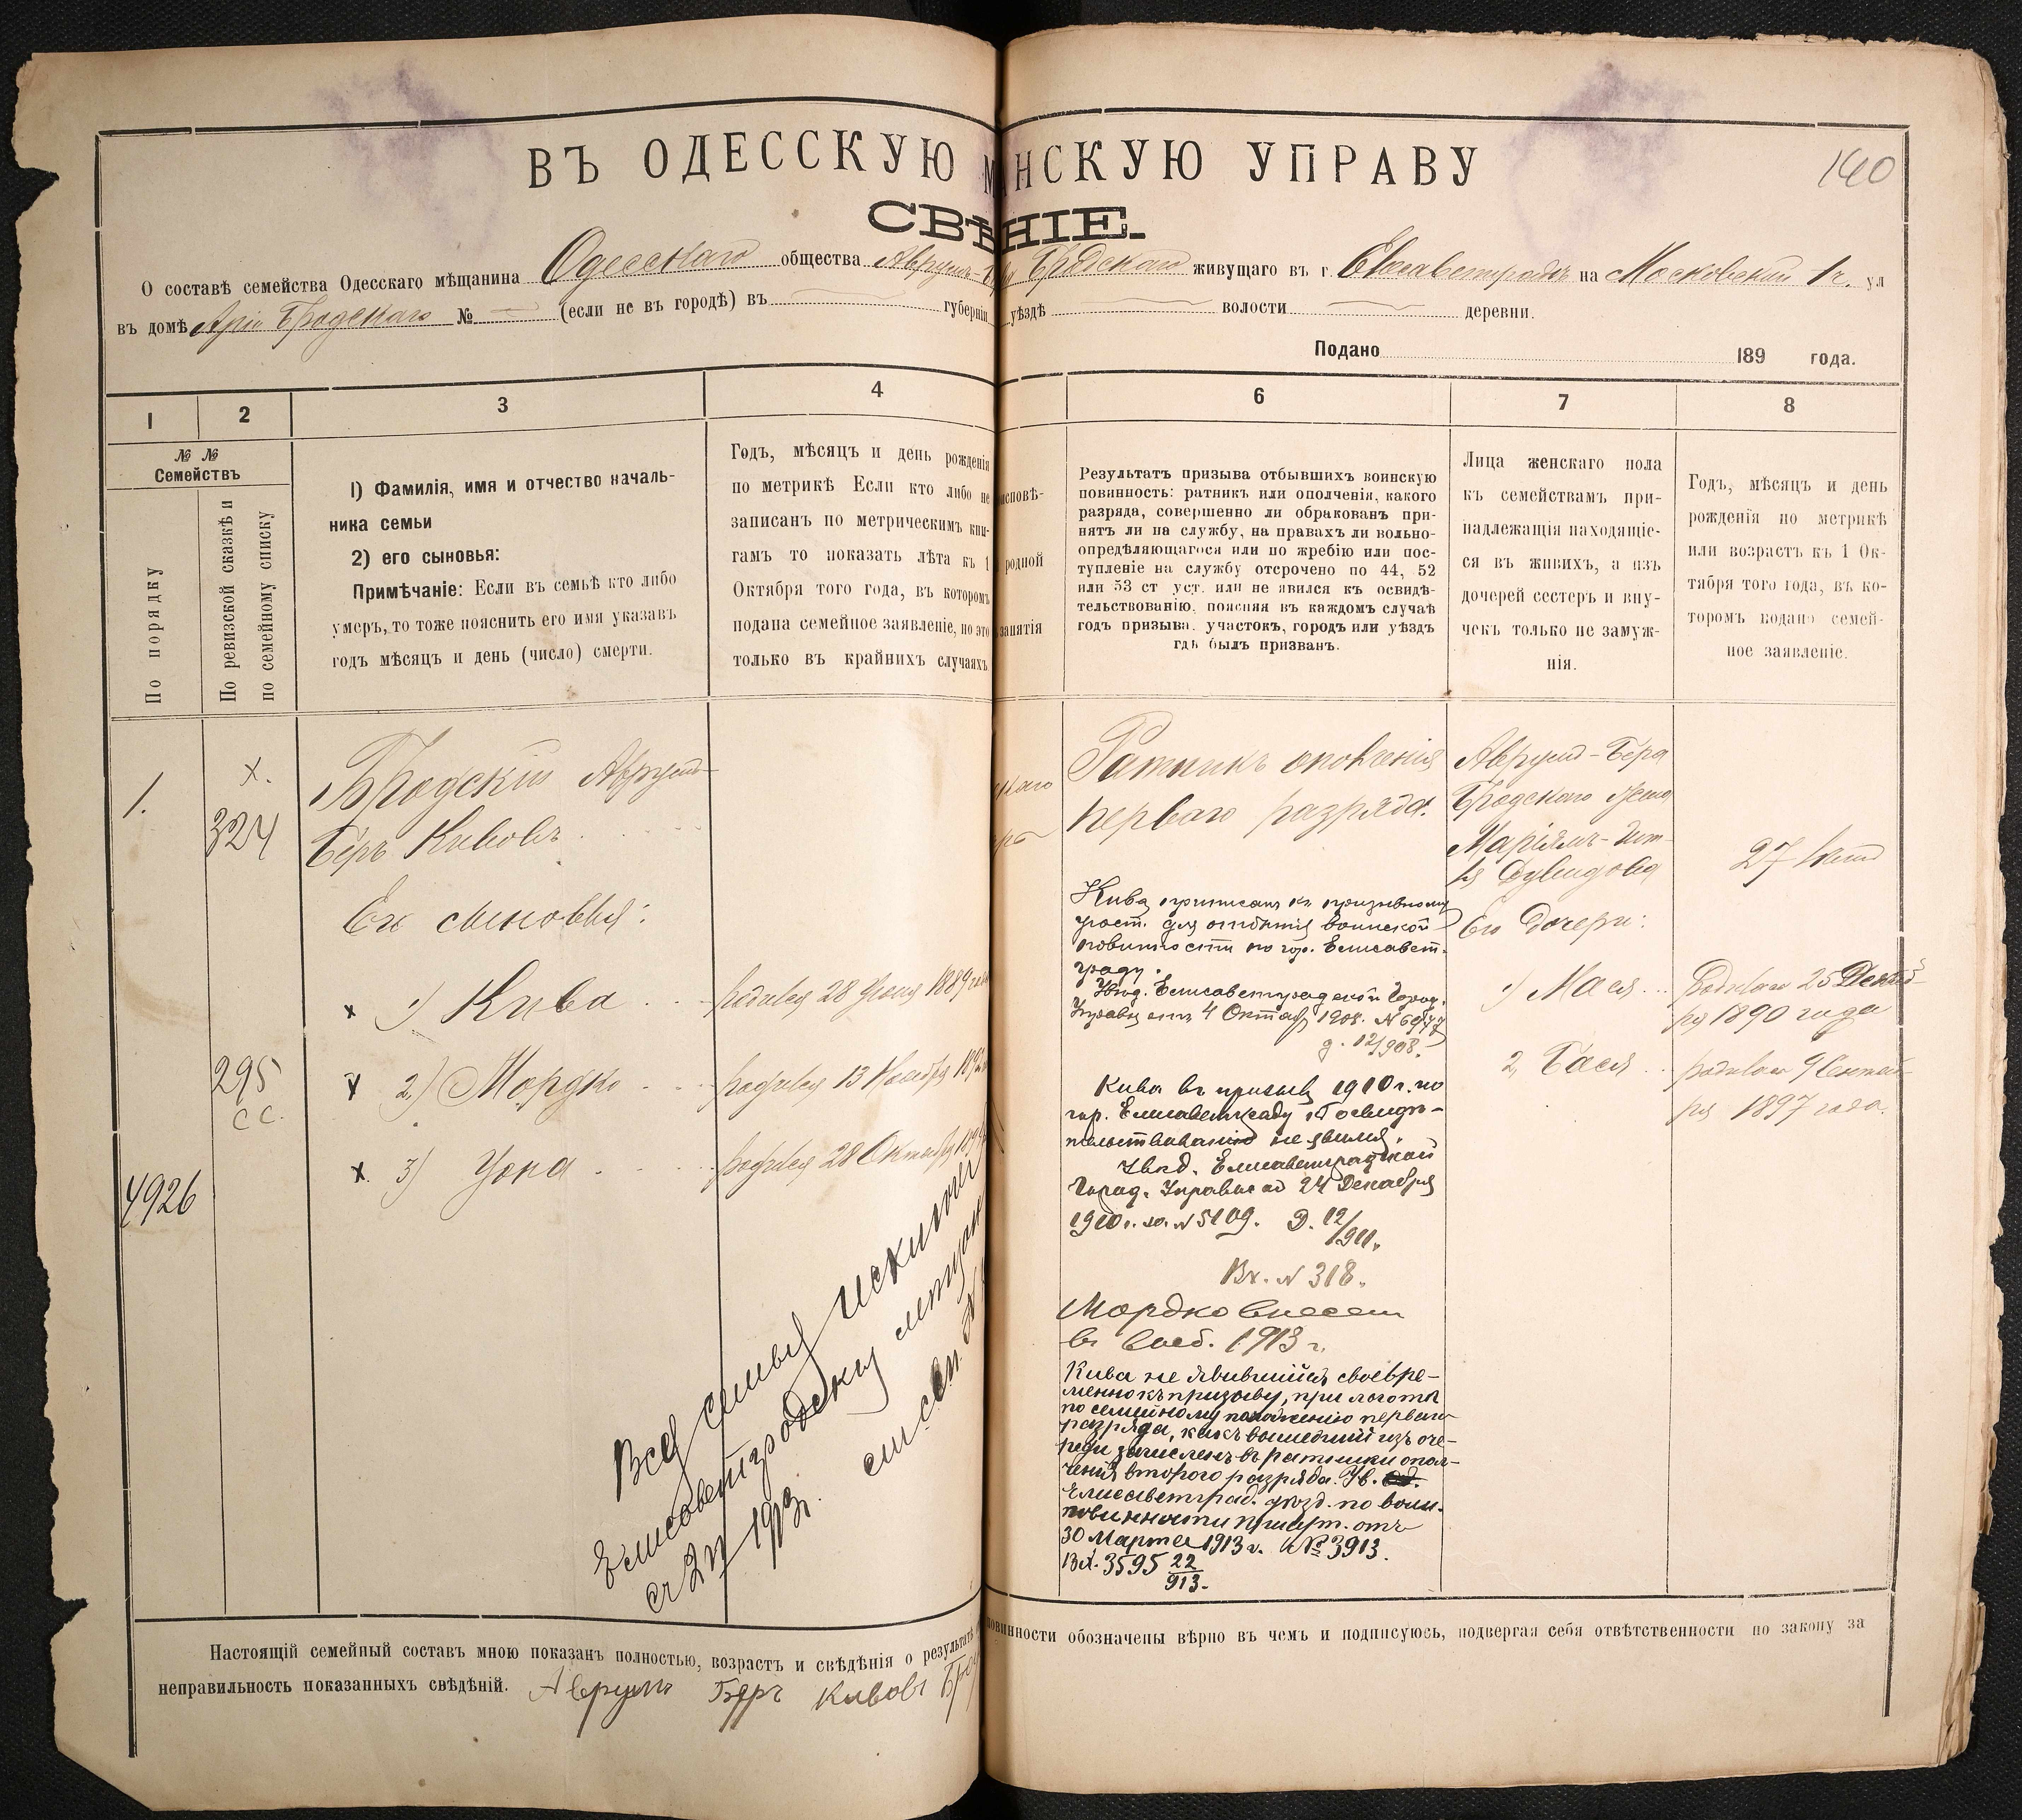 140
ВЪ ОДЕССКУЮ М НСКУЮ УПРАВУ
СВѢ НІЕ.
О составѣ семейства Одесскаго мѣщанина Одесскаго общества Аврумъ- Бродскаго живущаго въ г. Елисаветградѣ на Московской ул
въ домѣ Арiи Бродскаго № — (если не въ городѣ) въ губерніи уѣздѣ волости деревни.
Подано 189 года.
1
2
3
4
6
7
8
№ №
Семействъ
По порядку
По ревизской сказкѣ и
по семейному списку
1) Фамилія, имя и отчество началь-
ника семьи
2) его сыновья:
Примѣчаніе: Если въ семьѣ кто либо
умеръ, то тоже пояснить его имя указавъ
годъ мѣсяцъ и день (число) смерти.
Годъ, мѣсяцъ и день рожденія
по метрикѣ Если кто либо не
записанъ по метрическимъ кни-
гамъ то показать лѣта къ 1
Октября того года, въ которомъ
подана семейное заявленіе, но это
только въ крайнихъ случаяхъ
исповѣ-
родной
занятія
Результатъ призыва отбывшихъ воинскую
повинность: ратникъ или ополченія, какого
разряда, совершенно ли обракованъ при-
нятъ ли на службу, на правахъ ли вольно-
опредѣляющагося или по жребію или пос-
тупленіе на службу отсрочено по 44, 52
или 53 ст уст. или не явился къ освидѣ-
тельствованію. поясняя въ каждомъ случаѣ
годъ призыва. участокъ, городъ или уѣздъ
гдѣ былъ призванъ.
Лица женскаго пола
къ семействамъ при-
надлежащія находящіе-
ся въ живихъ, а изъ
дочерей сестеръ и вну-
чекъ только не замуж-
нія.
Годъ, мѣсяцъ и день
рожденія по метрикѣ
или возрастъ къ 1 Ок-
тября того года, въ ко-
торомъ подано семей-
ное заявленіе.
1.
х.
324
Бродскій Аврумъ-
Беръ Кивовъ
Его сыновья:
х 1) Кива родился 28 1889 года
295
с с.
х 2) Мордко родился 13 Ноября
х. 3) Іона родился 28 Октября
4926
Вся семья исключена
Елисаветградскую
съ 1913 г.
Ратникъ ополченія
перваго разряда.
Кива приписанъ къ призывному
участ. для отбытія воинской
повинности по гор. Елисавет-
граду.
Увѣд. Елисаветградской Город.
Управы отъ 4 Октяб. 1908. N
д. 12/908.
Кива въ призывъ 1910 г. по
гор. Елисаветграду къ освидѣ-
тельствованію не явился.
Увѣд. Елисаветградской
Город. Управы отъ 24 Декабря
1910 г. за N 5109. Д. 12/911.
Вх. N 318.
Мордко внесен
в 1913 г.
Кива не явившійся своевре-
менно къ призыву, при льготѣ
по семейному положенію перваго
разряда, какъ вышедшій изъ оче-
реди зачисленъ въ ратники опол-
ченія второго разряда. Ув.
Елисаветград. уѣзд. по воин.
повинности присут. отъ
30 Марта 1913 г. № 3913.
Вх. 3595 22/913.
Аврумъ-Бера
Бродскаго жена
Маріямъ-
Дувидова
27 лѣтъ
Его дочери:
1) Мася
родилась 25 Декаб-
ря 1890 года
2, Бася
родилась 9 Сентяб-
ря 1897 года.
Настоящій семейный составъ мною показанъ полностью, возрастъ и свѣдѣнія о результатѣ повинности обозначены вѣрно въ чемъ и подписуюсь, подвергая себя отвѣтственности по закону за
неправильность показанныхъ свѣдѣній. Аврумъ Беръ Кивовъ